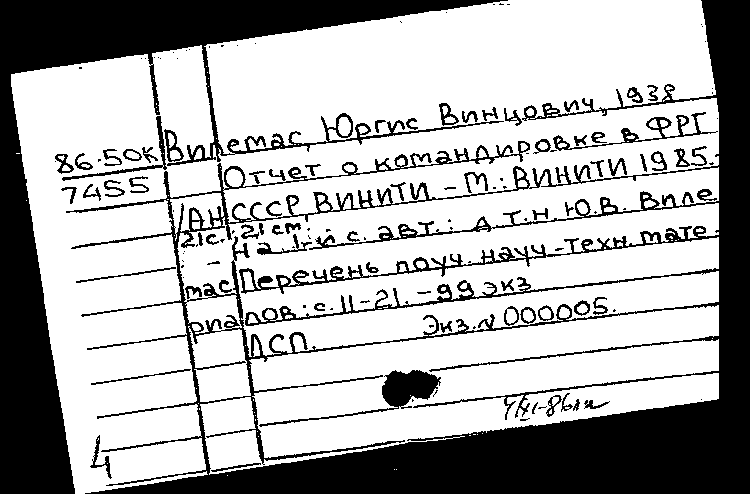 86-50К Вилемас, Юргис Винцович, 1938
7455 Отчет о командировке в ФРГ
/АН СССР, ВИНИТИ. - М.: ВИНИТИ, 1985. -
21с.; 21 см.
- На 1-й с. авт.: д.т.н. Ю.В. Виле
мас. Перечень луч. науч.-техн. мате-
риалов: с. 11-21. - 99 экз
ДСП. Экз. № 000005.
4